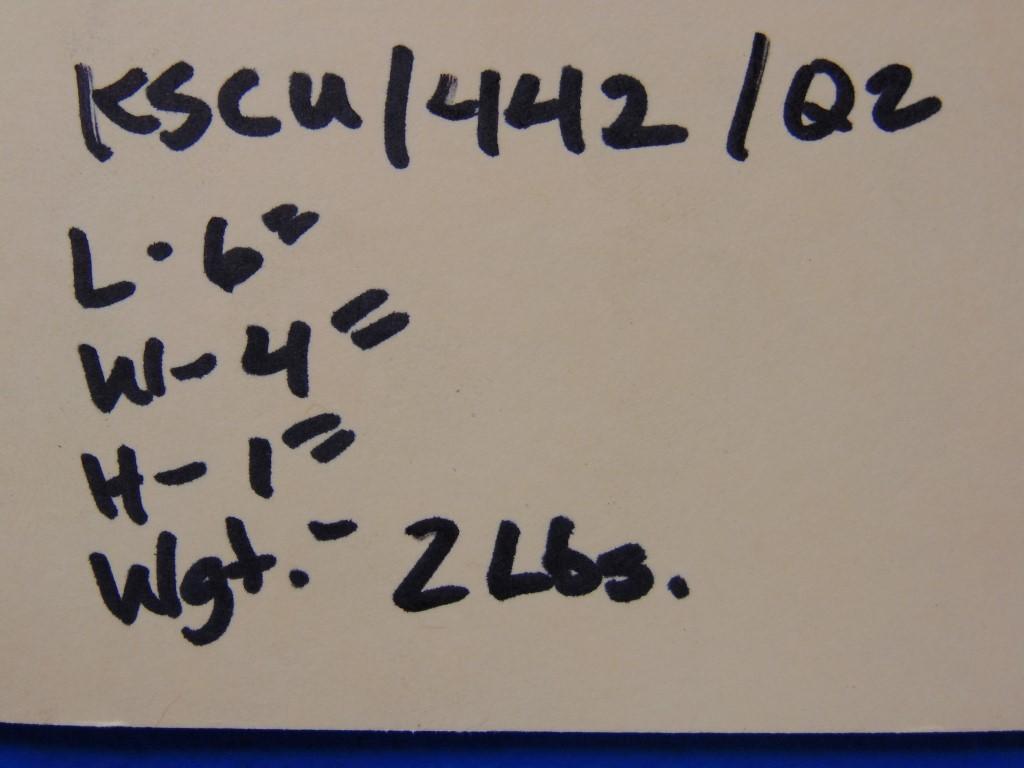 KSCU/442/Q2
L-6"
W-4"
H-1"
Wgt.- 2 Lbs.